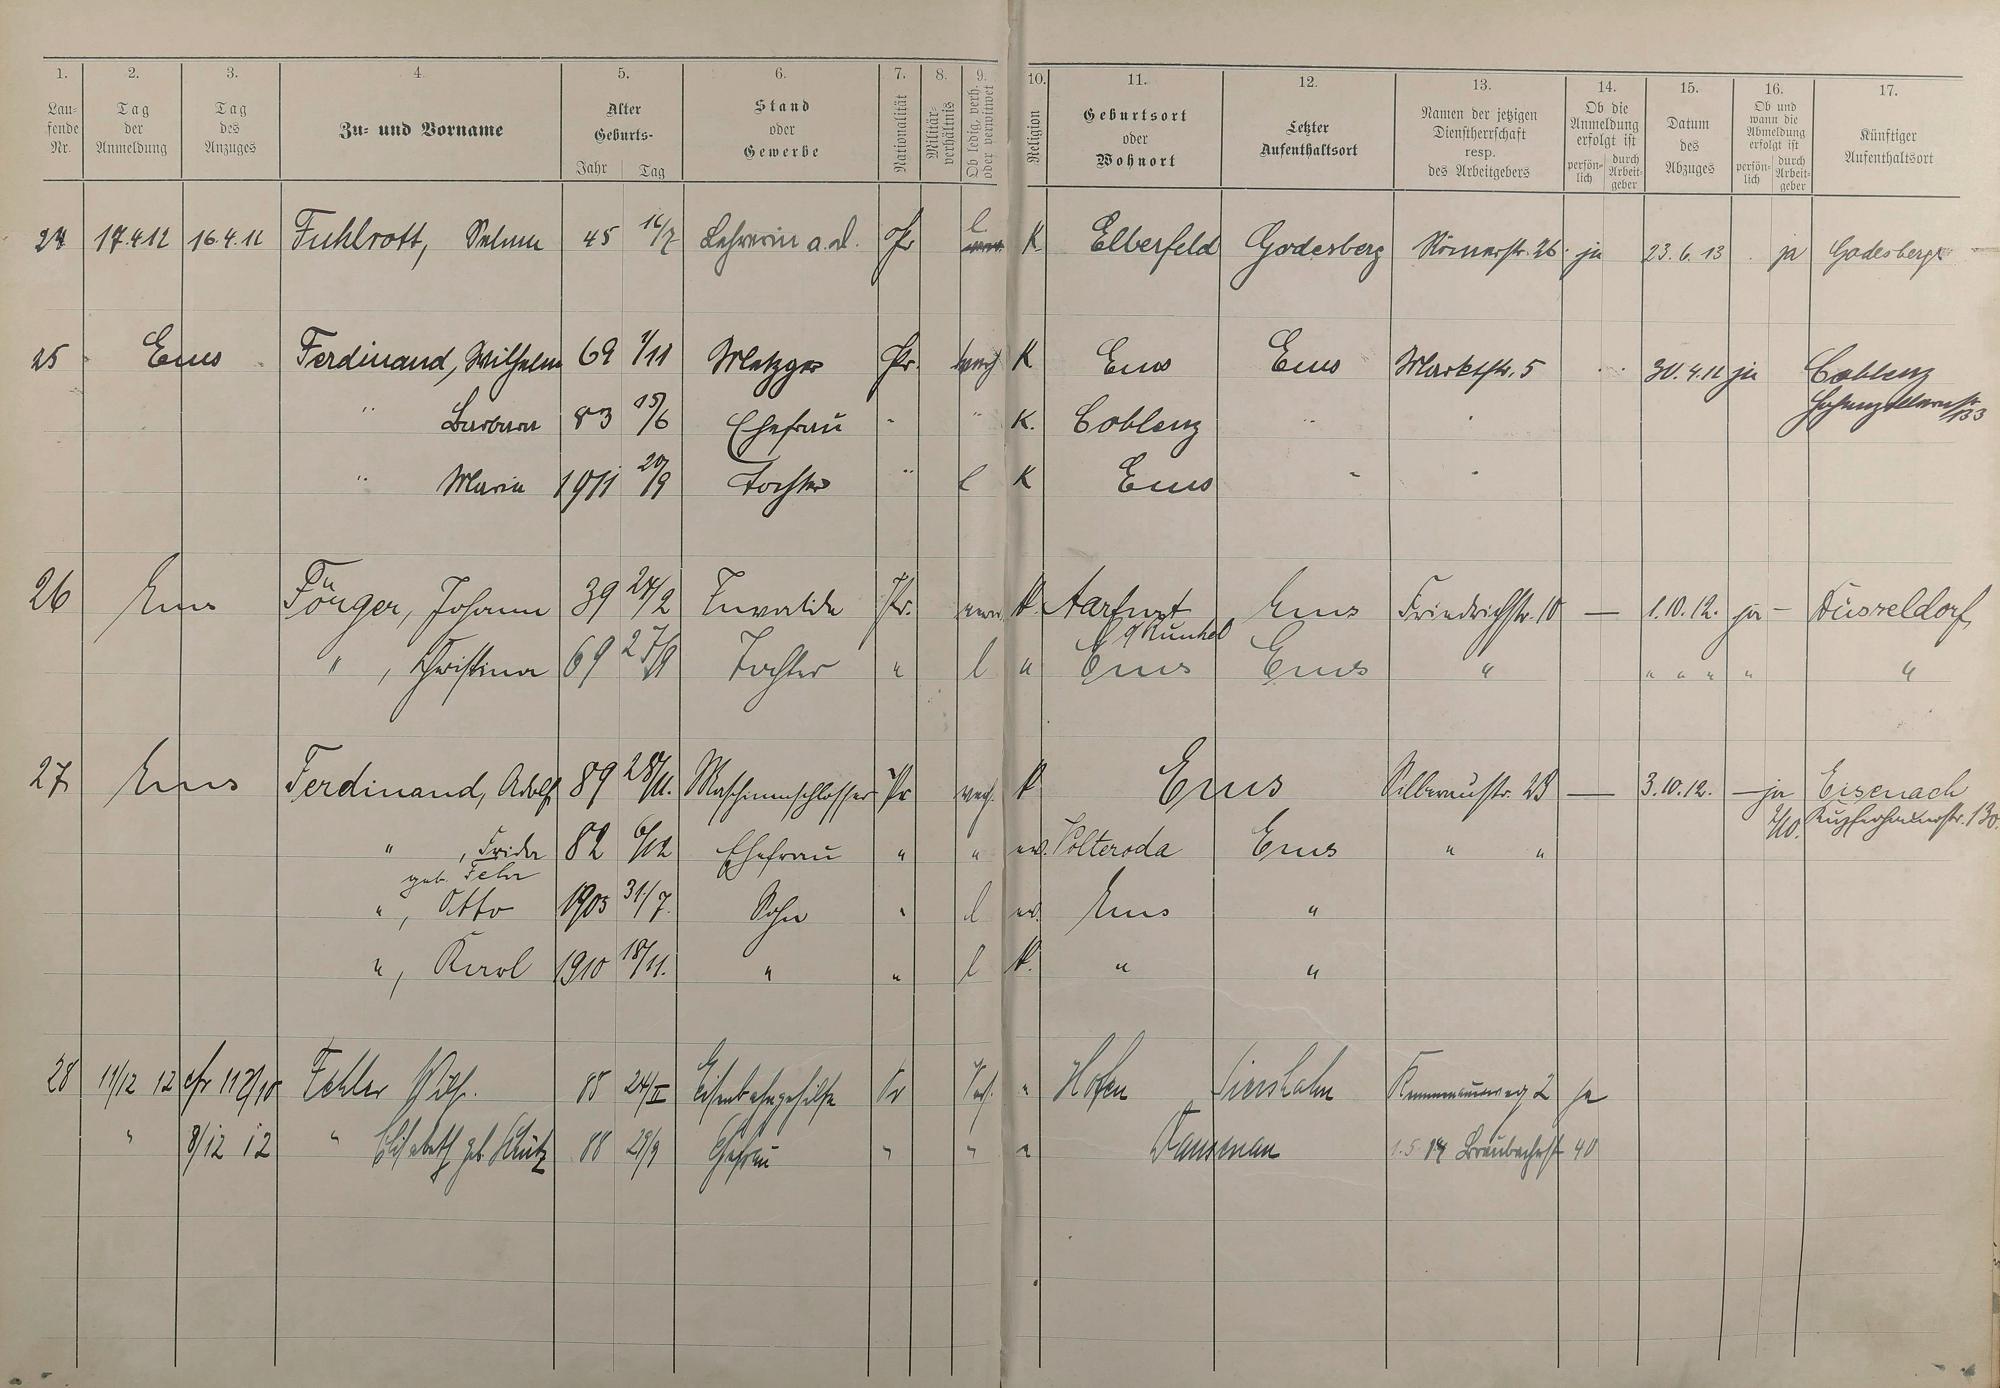 1. 2. 3. 4. 5. 6. 7. 8. 9. 10. 11. 12. 13. 14. 15. 16. 17.
Lau-fende Nr.
Tag der Anmeldung
Tag des Anzuges
Zu- und Vorname
Alter Geburts- Jahr Tag
Stand oder Gewerbe
Nationalität
Militär-verhältnis
Ob ledig, verh. oder verwitwet
Religion
Geburtsort oder Wohnort
Letzter Aufenthaltsort
Namen der jetzigen Dienstherrschaft resp. des Arbeitgebers
Ob die Anmeldung erfolgt ist persön-lich durch Arbeit-geber
Datum des Abzuges
Ob und wann die Abmeldung erfolgt ist persön-lich durch Arbeit-geber
Künftiger Aufenthaltsort
24 17.4.12 16.4.12 Fuhlrott, Selma 45 16/7 Lehrerin a.d. Pr l K Elberfeld Godesberg Römerstr. 26 ja 23.6.13 ja Godesberg
25 Ems Ferdinand, Wilhelm 69 1/11 Metzger Pr. verh K Ems Ems Marktstr. 5 30.4.12 ja Coblenz
" Barbara 83 15/6 Ehefrau " " K. Coblenz " " Hohenzollernstr 133
" Maria 1911 20/9 Tochter " l K Ems " "
26 Ems Fönger, Johann 39 24/2 Invalide Pr. verw. K. Aarfurt Ems Friedrichstr. 10 — 1.10.12. ja — Düsseldorf
a/Runkel
" , Christina 69 27/9 Tochter " l " Ems Ems " " " " " "
27 Ems Ferdinand, Adolf 89 28/11. Maschinenschlosser Pr verh. K Ems Silberaustr. 23 — 3.10.12. — ja Eisenach
2/10.
" , Frida 82 6/12 Ehefrau " " ev. Polteroda Ems " "
geb. Fehr
" , Otto 1903 31/7. Sohn " l ev. Ems "
" , Karol 1910 18/11. " " l K. " "
28 11/12 12 Fehler Wilh. 88 24/II Eisenbahngehilfe Pr Verh. " Hofen Siershahn 2 ja
" 8/12 12 " Elisabeth geb. Schütz 88 29/9 Ehefrau " " " Dausenau 1.5.14 Braubacherstr 40